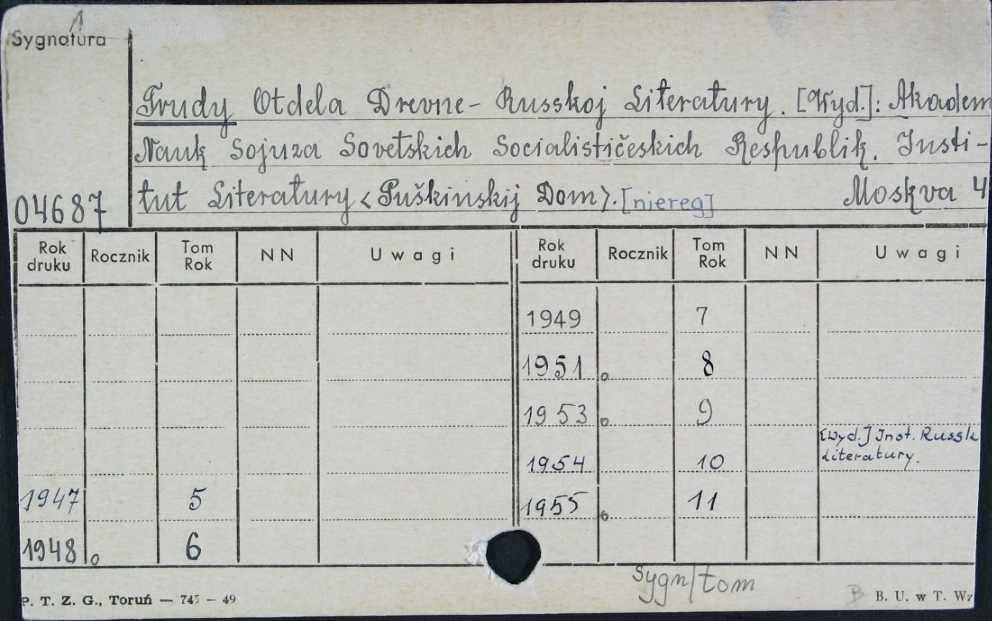 Sygnatura
Trudy Otdela Drevne-Russkoj Literatury. [Wyd.]: Akadem
Nauk Sojuza Sovetskich Socialističeskich Respublik. Insti-
04687 tut Literatury <Puškinskij Dom>. [niereg] Moskva 4
Rok druku Rocznik Tom Rok NN Uwagi Rok druku Rocznik Tom Rok NN Uwagi
1949 7
1951 8
1953 9
1954 10 [Wyd.] Inst. Russk
Literatury.
1947 5 1955 11
1948 6
Sygn/tom
P. T. Z. G., Toruń — 747 — 49 B B. U. w T. Wz